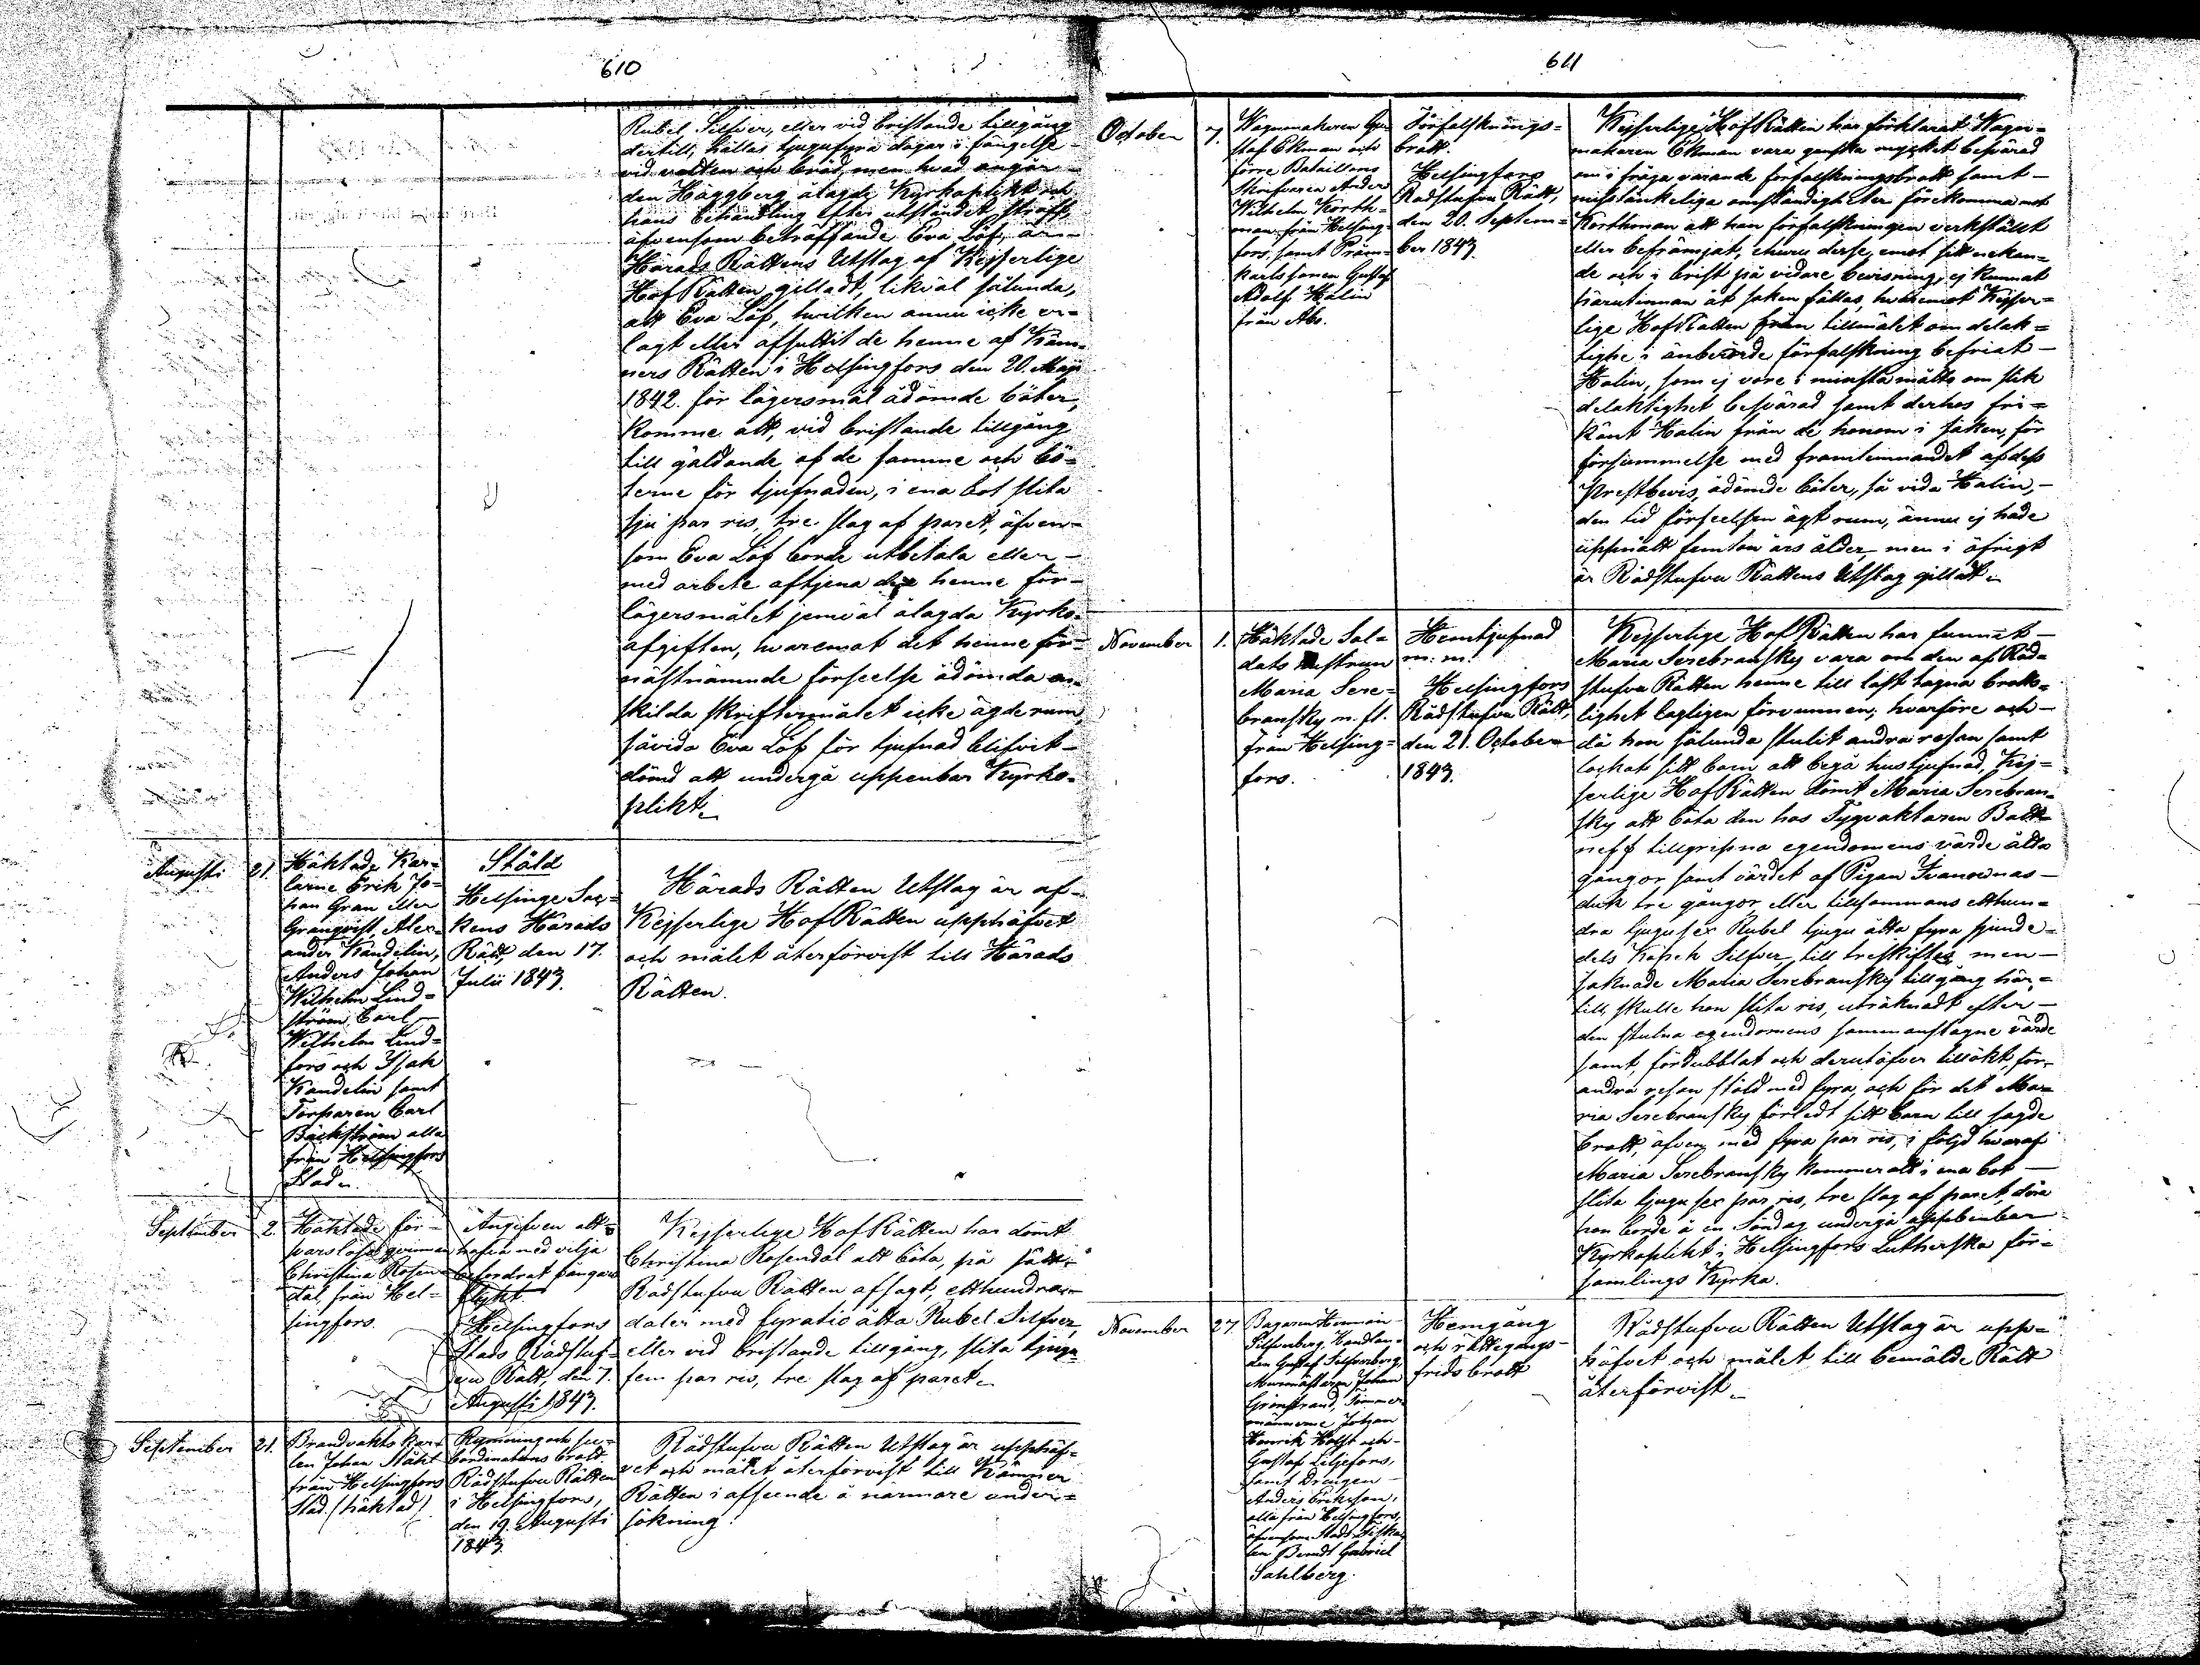 610
Rubel Silfver, eller vid bristande tillgång
dertill, hållas tjugufyra dagar i fängelse
vid vatten och bröd, men hvad angår
den Häggberg ålagde Kyrkoplikt och
hans behandling efter utståndet straff,
äfvensom beträffande Eva Löf, är
Härads Rättens Utslag af Kejserlige
Hof Rätten gilladt, likväl sålunda,
att Eva Löf, hwilken ännu icke er-
lagt eller afsuttit de henne af Käm-
ners Rätten i Helsingfors den 20. Maji
1842. för lägersmål ådömde böter,
komme att, vid bristande tillgång
till gäldande af de samme och bö-
terne för tjufnaden, i ena bot slita
sju par ris, tre slag af paret, äfven-
som Eva Löf borde utbetala eller
med arbete aftjena de henne för
lägersmålet jemväl ålagda Kyrko-
afgiften, hvaremot det henne för
nästnämnde förseelse ådömda en-
skilda skriftermålet icke ägde rum,
såvida Eva Löf för tjufnad blifvit
dömd att undergå uppenbar Kyrko-
plikt.
Augusti 21.
Häktade Kar-
larne Erik Jo-
han Gran eller
Granqvist, Alex-
ander Kandelin,
Anders Johan
Wilhelm Lind-
ström, Carl
Wilhelm Lind-
fors och Isak
Kandelin samt
Torparen Carl
Bäckström alla
från Helsingfors
Stad.
Stöld
Helsinge Soc-
kens Härads
Rätt, den 17.
Julii 1843.
Härads Rätten Utslag är af
Kejserlige Hof Rätten upphäfvet
och målet återförvist till Härads
Rätten.
September 2.
Häktade för-
svarslösa qvinnan
Christina Rosen-
dal, från Hel-
singfors.
Angifven att
hafva med vilja
befordrat fångars
flykt.
Helsingfors
Stads Rådstuf-
vu Rätt, den 7.
Augusti 1843.
Kejserlige Hof Rätten har dömt
Christina Rosendal att böta, på sätt
Rådstufvu Rätten afsagt, etthundra
daler med fyratio åtta Rubel Silfver,
eller vid bristande tillgång, slita tjugu
fem par ris, tre slag af paret.
September 21.
Brandvakts kar-
len Johan Ståhl
från Helsingfors
Stad. (häktad)
Rymning och su-
bordinations brott.
Rådstufvu Rätten
i Helsingfors,
den 19. Augusti
1843.
Rådstufvu Rätten Utslag är upphäf-
vet och målet återförvist till Kämner
Rätten i afseende å närmare under-
sökning.
611
October 7.
Wagnmakaren Gu-
staf Ekman och
förre Bataillons
Skrifvaren Anders
Wilhelm Korth-
man från Helsing-
fors, samt
karls sonen Gustaf
Adolf Halin
från Åbo.
Förfalsknings-
brott.
Helsingfors
Rådstufvu Rätt,
den 20. Septem-
ber 1843.
Kejserlige Hof Rätten har förklarat Wagn-
makaren Ekman vara ganska mycket besvärad
om i fråga varande förfalskningsbrott samt
misstänkeliga omständigheter förekomma mot
Korthman att han förfalskningen verkställt
eller befrämjat, ehuru desse, emot sitt nekan-
de och i brist på vidare bevisning, ej kunnat
härutinnan åt saken fällas, hvaremot Kejser-
lige Hof Rätten från tillmälet om delak-
tighet i änberörde förfalskning befriat
Halin, som ej vore i minsta måtto om slik
delaktighet besvärad samt derhos fri-
känt Halin från de honom i saken, för
försummelse med framlemnandet af dess
Prestbevis, ådömde böter, så vida Halin,
den tid förseelsen ägt rum, ännu ej hade
uppnått femton års ålder, men i öfrigt
är Rådstufvu Rättens Utslag gilladt.
November 1.
Häktade Sol-
dats hustrun
Maria Sere-
bransky m. fl.
från Helsing-
fors.
Hemtjufnad
m. m.
Helsingfors
Rådstufvu Rätt,
den 21. October
1843.
Kejserlige Hof Rätten har funnit
Maria Serebransky vara om den af Råd-
stufvu Rätten henne till last tagna brotts-
lighet lagligen förvunnen, hvarföre och
då hon sålunda stulit andra resan samt
lockat sitt barn att begå hustjufnad, Kej-
serlige Hof Rätten dömt Maria Serebran-
sky att böta den hos Tygvaktaren Batt-
neff tillgripna egendomens värde åtta
gångor samt värdet af Pigan Ivanownas
duk tre gångor eller tillsammans etthun-
dra tjugusex Rubel tjugu åtta fyra sjunde-
dels Kopek Silfver, till treskiftes, men
saknade Maria Serebransky tillgång här-
till, skulle hon slita ris, uträknadt efter
den stulna egendomens sammanslagne värde
samt, fördubblat och derutöfver tillökt för
andra resan stöld med fyra, och för det Ma-
ria Serebransky förledt sitt barn till sagde
brott, äfven med fyra par ris, i följd hvaraf
Maria Serebransky kommer att i ena bot
slita tjugusex par ris, tre slag af paret, dera
hon borde å en Söndag undergå uppenbar
Kyrkoplikt i Helsingfors Lutherska för-
samlings Kyrka.
November 27.
Bagaren Herman
Silfverberg, Handlan-
den Gustaf Silfverberg,
Murmästaren Johan
Grönstrand, Timmer-
männerne Johan
Henrik Holst och
Gustaf Liljefors,
samt Drängen
Anders Eriksson,
alla från Helsingfors,
äfvensom Stads Fiska-
len Berndt Gabriel
Sahlberg.
Hemgång
och rättegångs-
frids brott
Rådstufvu Rätten Utslag är upp-
häfvet och målet till bemälde Rätt
återförvist.